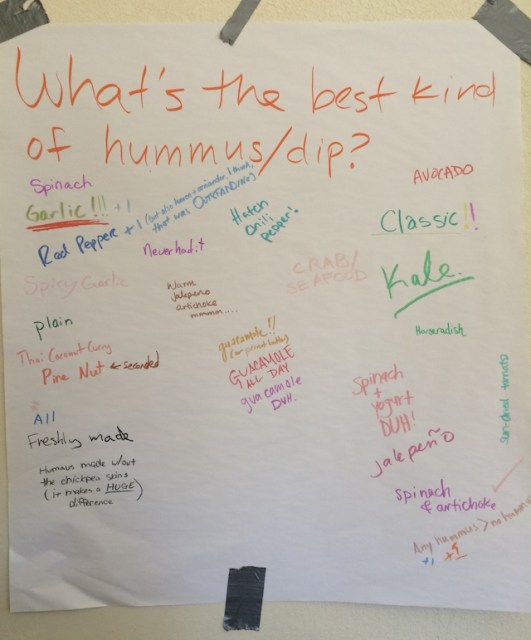 What's the best kind
of hummus/dip?
Spinach
Garlic!!! +1
Red Pepper +1 (but also
that was OUTSTANDING)
Never had it
Hatch
Chili
pepper!
AVOCADO
Classic!!
Spicy Garlic
Warm
jalapeño
artichoke
mmmm....
CRAB/
SEAFOOD
Kale
plain
Horseradish
Thai Coconut Curry
Pine Nut ← seconded
guacamole!!
GUACAMOLE
ALL DAY
guacamole
DUH.
Spinach
+
yogurt
DUH!
sun-dried tomato
All
Freshly made
jalapeño
Hummus made w/out
the chickpea skins
(it makes a HUGE)
difference
spinach
& artichoke
Any hummus > no hummus
+1 +1